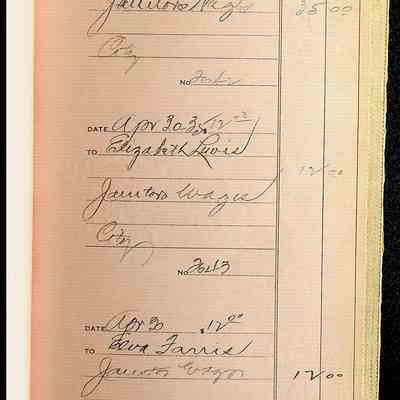 Janitors Wages 35 00
City
No 2642
DATE Apr 30 35 12 00
TO Elizabeth Lewis
12 00
Janitors Wages
City
No 2643
DATE Apr 30 12 00
TO Eva Farris
Janitor Wages 12 00